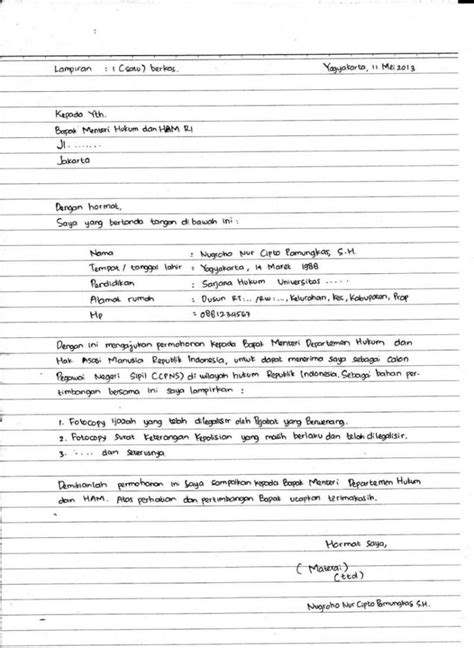 Lampiran : 1 (satu) berkas. Yogyakarta, 11 Mei 2013
Kepada Yth.
Bapak Menteri Hukum dan HAM RI
Jl. ........
Jakarta
Dengan hormat,
Saya yang bertanda tangan dibawah ini :
Nama : Nugroho Nur Cipto Pamungkas, S.H.
Tempat / tanggal lahir : Yogyakarta, 14 Maret 1988
Pendidikan : Sarjana Hukum Universitas .....
Alamat rumah : Dusun RT.../RW..., Kelurahan, Kec, Kabupaten, Prop
Hp : 0881234567
Dengan ini mengajukan permohonan kepada Bapak Menteri Departemen Hukum dan
Hak Asasi Manusia Republik Indonesia, untuk dapat menerima saya sebagai Calon
Pegawai Negeri Sipil (CPNS) di wilayah hukum Republik Indonesia. Sebagai bahan per-
timbangan bersama ini saya lampirkan :
1. Fotocopy Ijazah yang telah dilegalisir oleh Pejabat yang Berwenang.
2. Fotocopy Surat Keterangan Kepolisian yang masih berlaku dan telah dilegalisir.
3. ..... dan seterusnya
Demikianlah permohonan ini Saya sampaikan kepada Bapak Menteri Departemen Hukum
dan HAM. Atas perhatian dan pertimbangan Bapak ucapkan terimakasih.
Hormat Saya,
( Materai )
(ttd)
Nugroho Nur Cipto Pamungkas S.H.